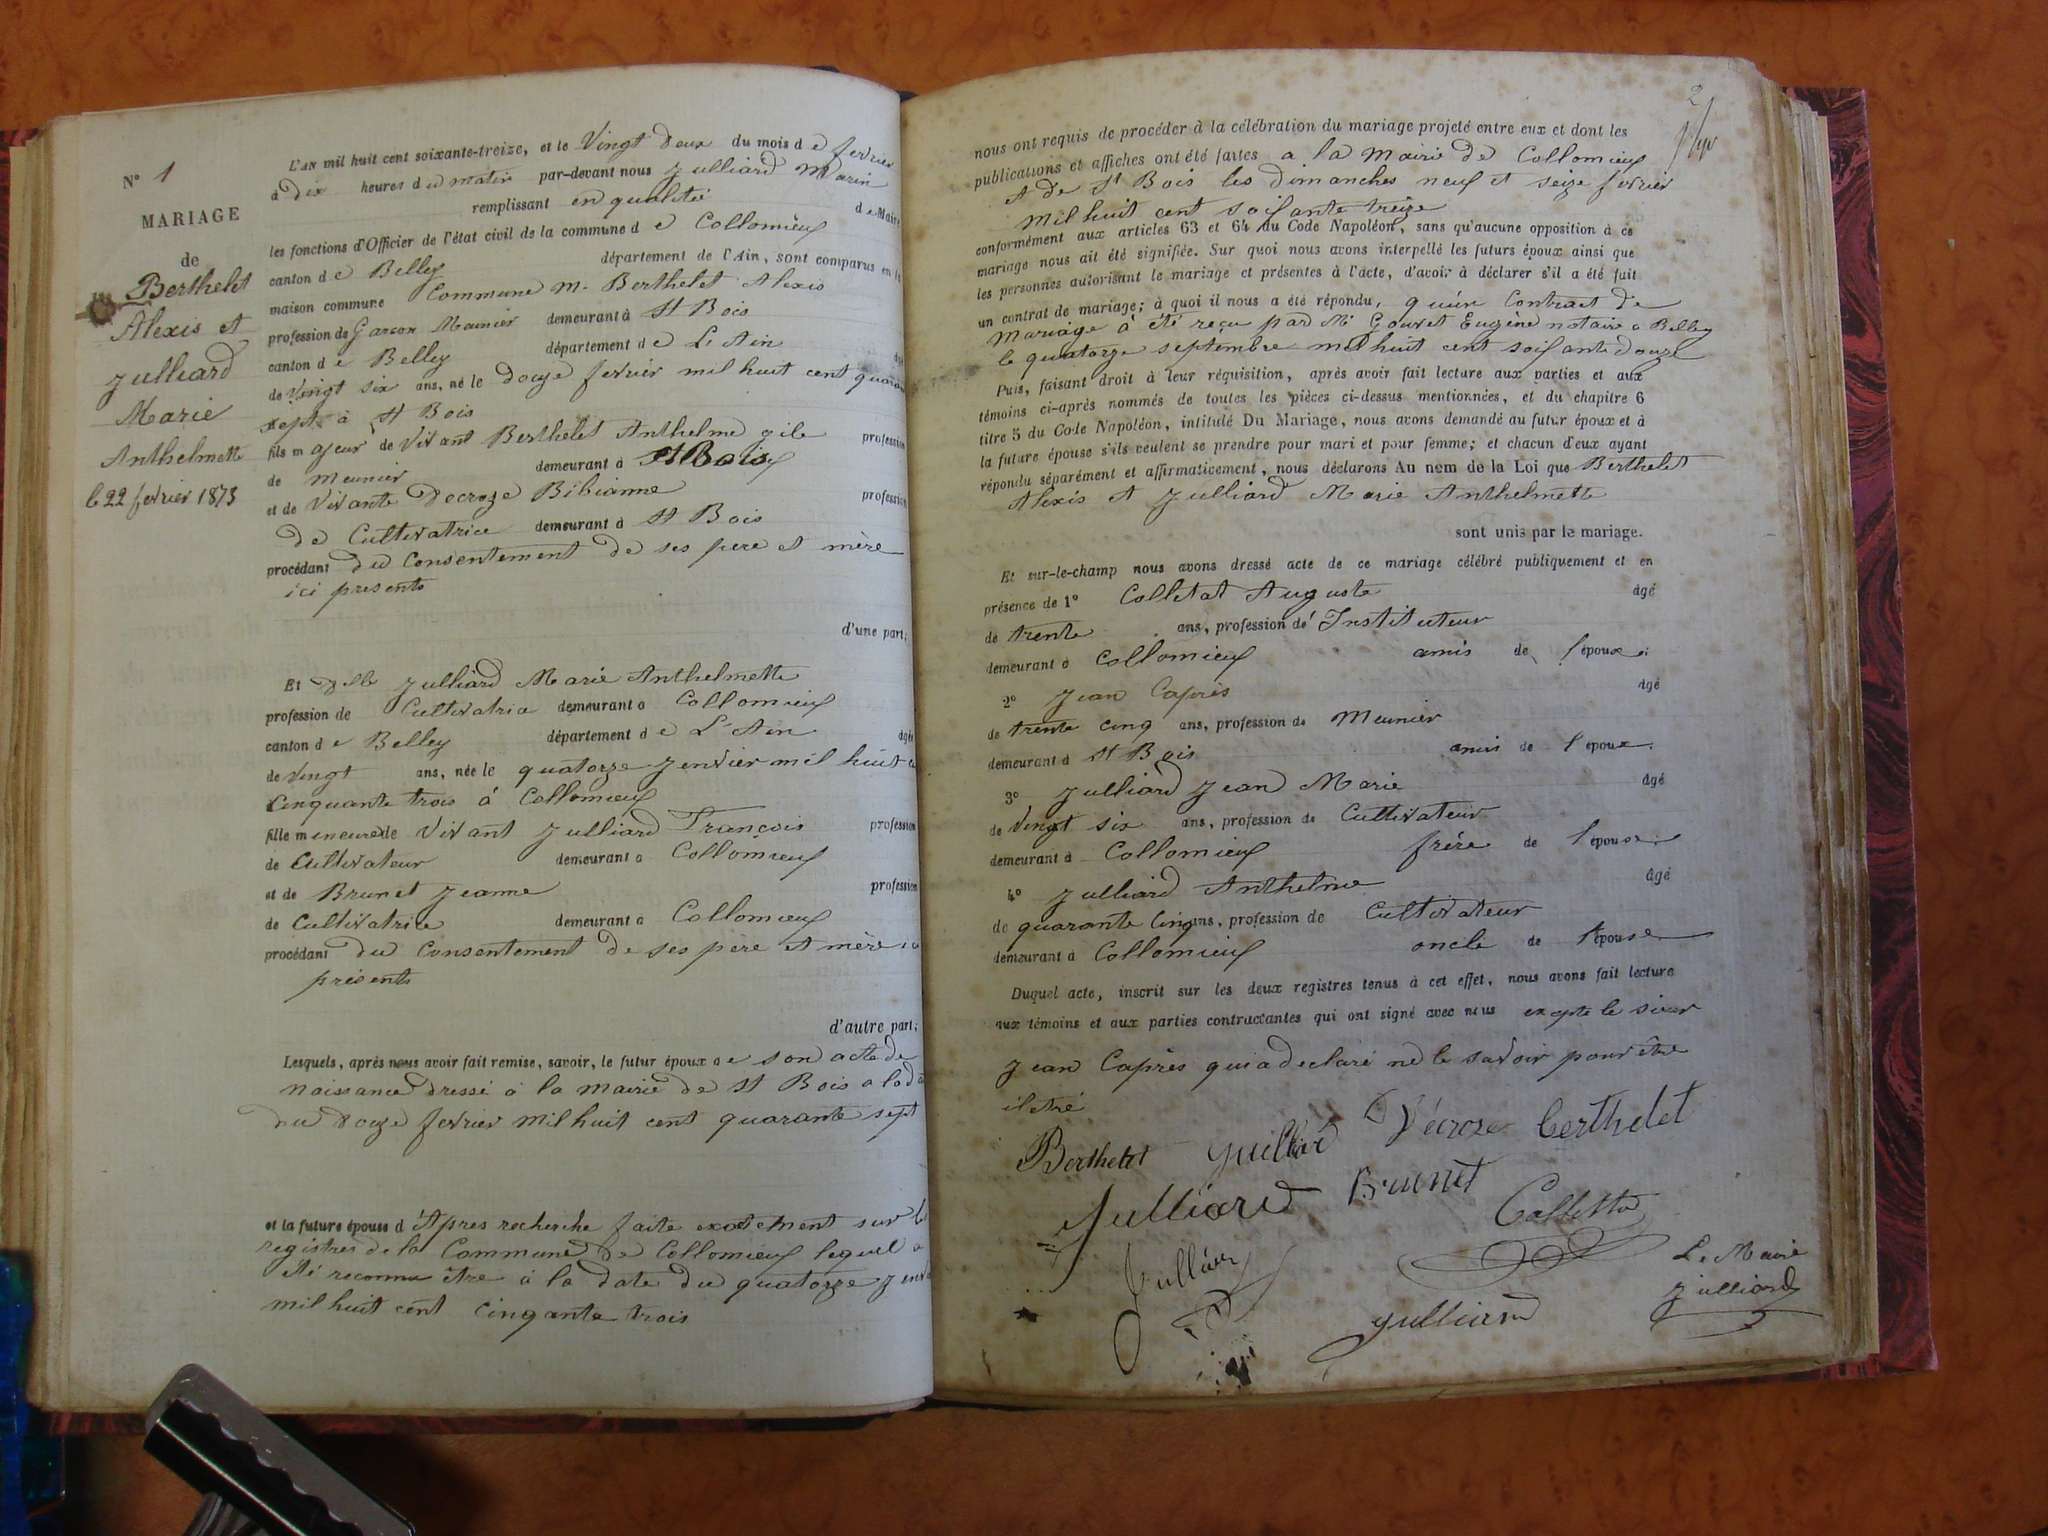 N° 1
MARIAGE
de
Berthelet
Alexis et
Julliard
Marie
Anthelmette
le 22 fevrier 1873
L'AN mil huit cent soixante-treize, et le Vingt deux du mois de fevrier
à dix heures du matin par-devant nous Julliard Marin
remplissant en qualité de Maire
les fonctions d'Officier de l'état civil de la commune de Collomieux
canton de Belley département de l'Ain, sont comparus en la
maison commune Commune M. Berthelet Alexis
profession de Garçon Meunier demeurant à St Bois
canton de Belley département de L'Ain âgé
de Vingt six ans, né le douze fevrier mil huit cent quarante
sept à St Bois
fils majeur de Vivant Berthelet Anthelme profession
de meunier demeurant à St Bois
et de Vivante Decroze Bibianne profession
de Cultivatrice demeurant à St Bois
procédant du Consentement de ses pere et mère
ici presents
d'une part;
Et Delle Julliard Marie Anthelmette
profession de Cultivatrice demeurant à Collomieux
canton de Belley département de L'Ain âgée
de Vingt ans, née le quatorze Jenvier mil huit
Cinquante trois à Collomieux
fille mineure de Vivant Julliard François profession
de Cultivateur demeurant à Collomieux
et de Brunet Jeanne profession
de Cultivatrice demeurant à Collomieux
procédant du Consentement de ses père et mère
présents
d'autre part;
Lesquels, après nous avoir fait remise, savoir, le futur époux de son acte de
naissance dressé à la mairie de St Bois a la
du douze fevrier mil huit cent quarante sept
et la future épouse d'Apres recherche faite exatement sur
registres de la Commune de Collomieux lequel a
été reconnu être à la date du quatorze
mil huit cent cinqante trois
2
nous ont requis de procéder à la célébration du mariage projeté entre eux et dont les
publications et affiches ont été faites a la Mairie de Collomieux
et de St Bois les dimanches neuf et seize fevrier
mil huit cent soisante treize
conformément aux articles 63 et 64 du Code Napoléon, sans qu'aucune opposition à ce
mariage nous ait été signifiée. Sur quoi nous avons interpellé les futurs époux ainsi que
les personnes autorisant le mariage et présentes à l'acte, d'avoir à déclarer s'il a été fait
un contrat de mariage; à quoi il nous a été répondu, qu'un Contract de
Mariage à été reçu par Me Gouvet Eugène notaire a Belley
le quatorze septembre mil huit cent soisante douze
Puis, faisant droit à leur réquisition, après avoir fait lecture aux parties et aux
témoins ci-après nommés de toutes les pièces ci-dessus mentionnées, et du chapitre 6
titre 5 du Code Napoléon, intitulé Du Mariage, nous avons demandé au futur époux et à
la future épouse s'ils veulent se prendre pour mari et pour femme; et chacun d'eux ayant
répondu séparément et affirmativement, nous déclarons Au nom de la Loi que Berthelet
Alexis et Julliard Marie Anthelmette
sont unis par le mariage.
Et sur-le-champ nous avons dressé acte de ce mariage célébré publiquement et en
présence de 1° Colletat Auguste âgé
de trente ans, profession de Instituteur
demeurant à Collomieux amis de l'époux;
2° Jean Caprès âgé
de trente cinq ans, profession de Meunier
demeurant à St Bois amis de l'époux;
3° Julliard Jean Marie âgé
de Vingt six ans, profession de Cultivateur
demeurant à Collomieux frère de l'épouse;
4° Julliard Anthelme âgé
de quarante cinq ans, profession de Cultivateur
demeurant à Collomieux oncle de l'épouse
Duquel acte, inscrit sur les deux registres tenus à cet effet, nous avons fait lecture
aux témoins et aux parties contractantes qui ont signé avec nous exepte le sieur
Jean Caprès qui a declaré ne le savoir pour être
iletré
Berthelet Julliard Décroze Berthelet
Julliard Brunet Colletta
Julliard Le Maire
Julliard Julliard